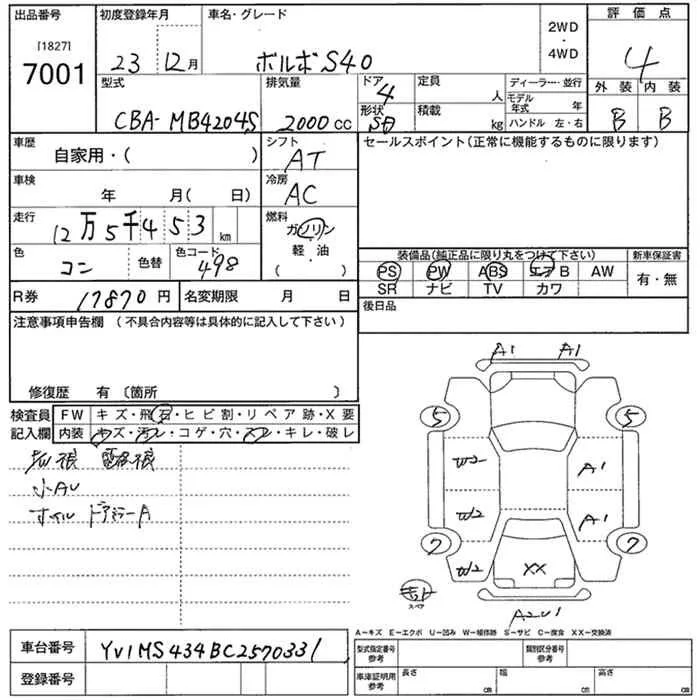 出品番号 初度登録年月 車名・グレード 2WD・4WD 評価点
[1827]
7001 23 12月 ボルボS40 4
型式 排気量 ドア 4 定員 人 ディーラー・並行 外装 内装
CBA-MB4204S 2000cc 形状 SD 積載 kg モデル年式 年 B B
ハンドル 左・右
車歴 自家用・( ) シフト AT セールスポイント(正常に機能するものに限ります)
車検 年 月( 日) 冷房 AC
走行 12万5千453km 燃料 ガソリン
軽・油
( )
色 コン 色替 色コード 498
装備品(純正品に限り丸をつけて下さい) 新車保証書
PS PW ABS エアB AW 有・無
SR ナビ TV カワ
R券 17870円 名変期限 月 日 後日品
注意事項申告欄 (不具合内容等は具体的に記入して下さい)
修復歴 有 〔箇所 〕
検査員 FW キズ・飛石・ヒビ割・リペア跡・X要
記入欄 内装 キズ・汚レ・コゲ・穴・スレ・キレ・破レ
小AU
ホイル ドアミラーA
A1 A1
5 5
W2 A1
W2 A1
7 7
W2 XX
スペア
A2U1
A-キズ E-エクボ U-凹み W-補修跡 S-サビ C-腐食 XX-交換済
車台番号 YV1MS434BC2570331 型式指定番号 参考 類別区分番号 参考
登録番号 車庫証明用 参考 長さ cm 幅 cm 高さ cm